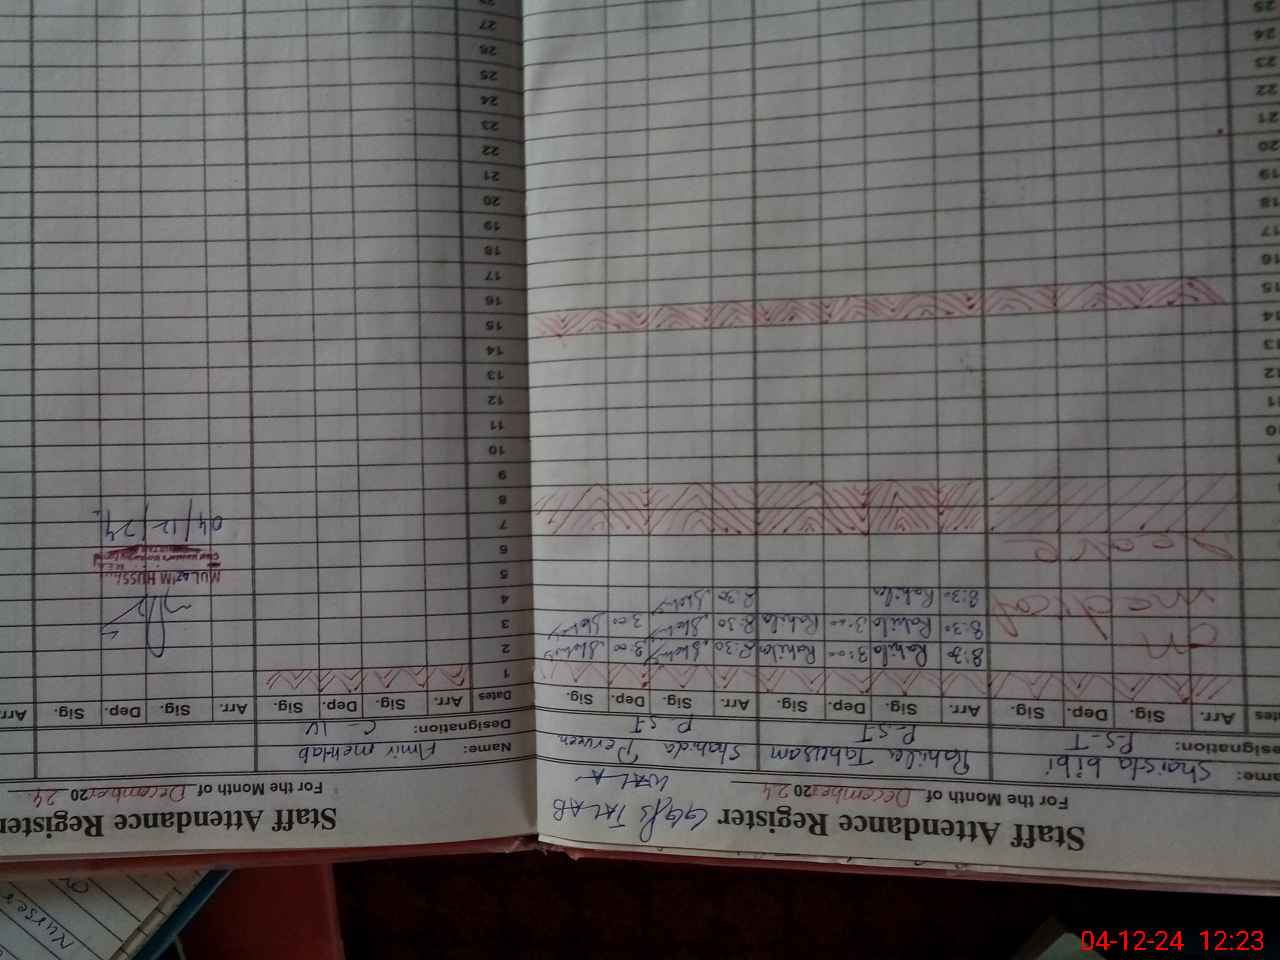 Staff Attendance Register GGPS TALAB
WALA
For the Month of December 2024
Name: Shaista bibi Rahila Tabusam Shahida Perveen
Designation: P.S.T P.S.T P.S.T
Dates Arr. Sig. Dep. Sig. Arr. Sig. Dep. Sig. Arr. Sig. Dep. Sig.
On 8:30 Rahila 3:00 Rahila 8:30 3:00
medical 8:30 Rahila 3:00 Rahila 8:30 3:00
8:30 Rahila 8:30
leave
7
8
9
10
11
12
13
14
15
16
17
18
19
20
21
22
23
24
25
Staff Attendance Register
For the Month of December 2024
Name: Amir mehtab
Designation: C-IV
Dates Arr. Sig. Dep. Sig. Arr. Sig. Dep. Sig. Arr.
1
2
3
4
5
MULAZIM HUSSAIN
6
7
04/12/24
8
9
10
11
12
13
14
15
16
17
18
19
20
21
22
23
24
25
26
27
Nurse
04-12-24 12:23